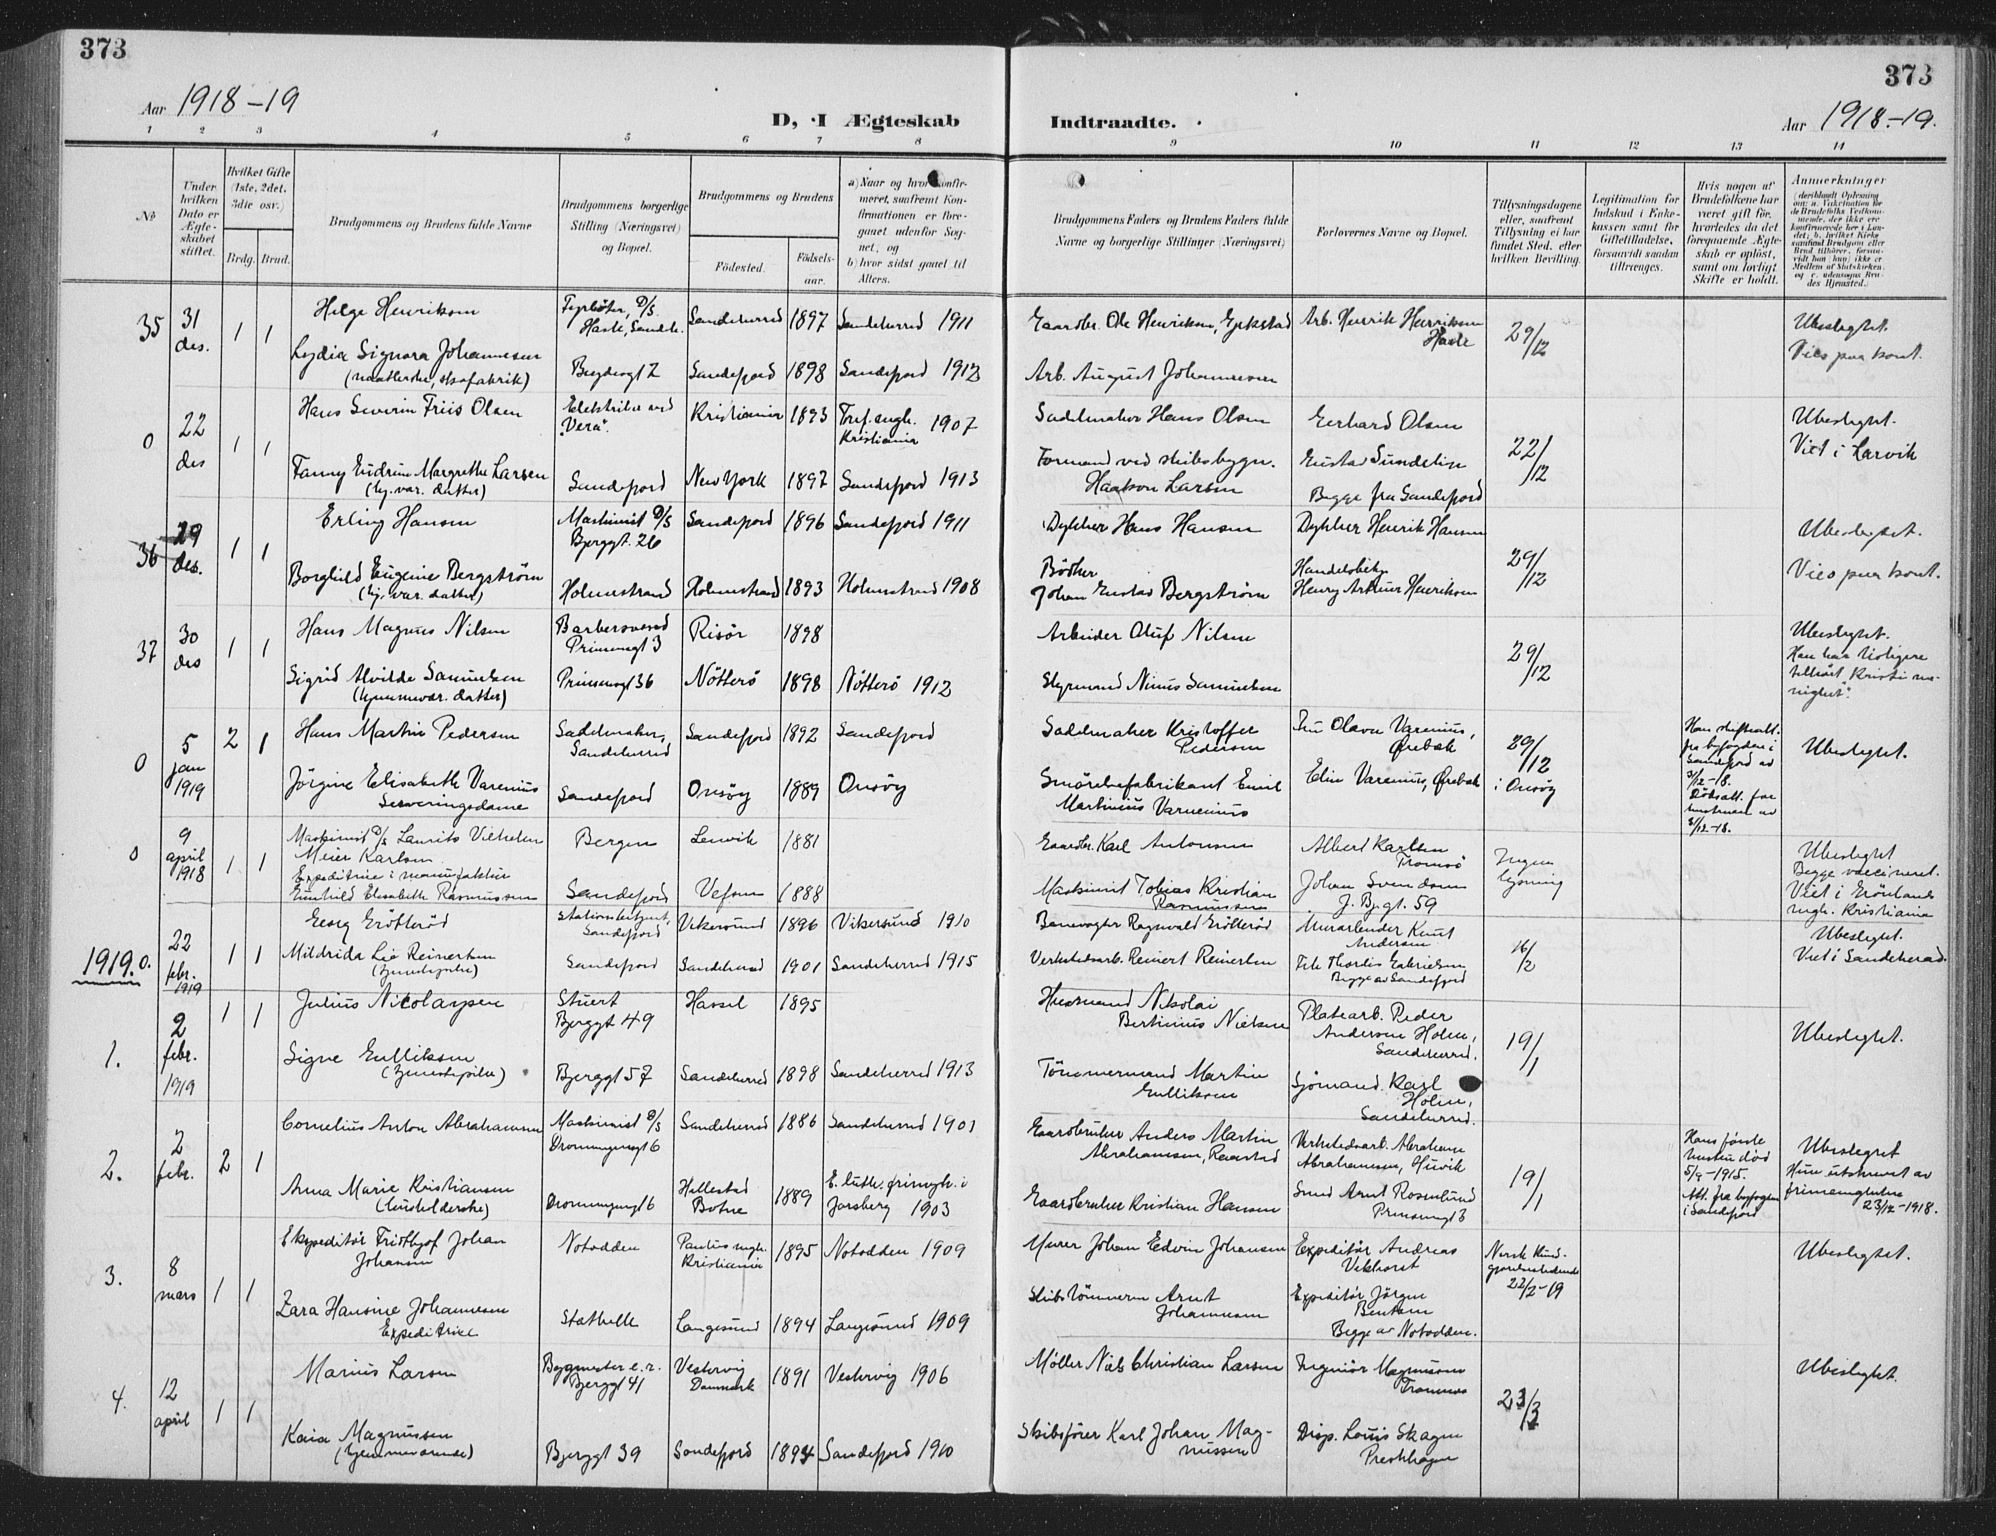 373
373
Aar 1918-19
D, I Ægteskab
Indtraadte.
Aar 1918-19.
1 2 3 4 5 6 7 8 9 10 11 12 13 14
No
Under hvilken Dato er Ægteskabet stiftet.
Hvilket Gifte (1ste, 2det, 3die osv.)
Brdg. Brud.
Brudgommens og Brudens fulde Navne
Brudgommens borgerlige Stilling (Næringsvei) og Bopæl.
Brudgommens og Brudens
Fødested.
Fødselsaar.
a) Naar og hvor konfirmeret, saafremt Konfirmationen er foregaaet udenfor Sognet, og
b) hvor sidst gaaet til Alters.
Brudgommens Faders og Brudens Faders fulde Navne og borgerlige Stillinger (Næringsvei)
Forlovernes Navne og Bopæl.
Tillysningsdagene eller, saafremt Tillysning ei har fundet Sted, efter hvilken Bevilling.
Legitimation for Indskud i Enkekassen samt for Giftetilladelse, forsaavidt saadan tiltrænges.
Hvis nogen af Brudefolkene har været gift før, hvorledes da det foregaaende Ægteskab er opløst, samt om lovligt Skifte er holdt.
Anmerkninger
35 31 des. 1 1 Helge Henriksen Fyrbøter, D/S Hasle, Sandeh. Sandeherred 1897 Sandeherred 1911 Gaardbr. Ole Henriksen, Gjekstad Arb. Henrik Henriksen Hasle 29/12 Ubeslegtet.
Lydia Signora Johannesen Bugdevgt 2 Sandefjord 1898 Sandefjord 1912 Arb. August Johannesen Vies paa kont.
0 22 des 1 1 Hans Severin Friis Olsen Elektriker ved "Vera". Kristiania 1893 Kristiania 1907 Sadelmaker Hans Olsen Gerhard Olsen 22/12 Ubeslegtet.
Fanny Gudrun Margrethe Larsen (hj. vær. datter) Sandefjord New York 1897 Sandefjord 1913 Formand ved skibsbygn. Haakon Larsen Gustav Sundelin Begge fra Sandefjord Viet i Larvik
36 29 des. 1 1 Erling Hansen Maskinist D/S Bjerggt. 26 Sandefjord 1896 Sandefjord 1911 Dykker Hans Hansen Dykker Henrik Hansen 29/12 Ubeslegtet.
Borghild Eugenie Bergstrøm (hj. vær. datter) Holmestrand Holmestrand 1893 Holmestrand 1908 Bødker Johan Gustav Bergstrøm Handelsbetj. Henry Arthur Henriksen Vies paa kont.
37 30 des 1 1 Hans Magnus Nilsen Barbersvend Prinsensgt 3 Risør 1898 Arbeider Oluf Nilsen 29/12 Ubeslegtet.
Sigrid Alvilde Samuelsen (hjemmevær. datter) Prinsensgt 36 Nøtterø 1898 Nøtterø 1912 Styrmand Ninus Samuelsen Han har tidligere tilhørt "Kristi menighet".
0 5 jan 1919 2 1 Hans Martin Pedersen Sadelmaker, Sandeherred Sandefjord 1892 Sandefjord Sadelmaker Kristoffer Pedersen Fru Olava Varenius, Ørebæk 29/12 i Onsøy Han skifteatt. fra byfogden i Sandefjord av 3/12-18. Dødsatt. for hustruen av 3/12-18. Ubeslegtet.
Jörgine Elisabeth Varenius Serveringsdame Sandefjord Onsøy 1889 Onsøy Smørolsefabrikant Emil Martinius Varenius Elin Varenius, Ørebæk
0 9 april 1918 1 1 Maskinist D/S Laurits Vilhelm Meier Karlsen Bergen Lenvik 1881 Gaardbr. Karl Antonsen Albert Karlsen Tromsø Ingen lysning Ubeslegtet Begge vaccineret.
Expeditrice i manufaktur Gunhild Elisabeth Rasmussen Sandefjord Vefsen 1888 Maskinist Tobias Kristian Rasmussen Johan Svendsen J. Bj. gt. 59 Viet i Grönlands mgh. Kristiania
1919. 0. 22 febr. 1919 1 1 Georg Grötteröd Stationsbetjent, Sandefjord Vikersund 1896 Vikersund 1910 Banevogter Ragnvald Grötteröd Murarbeider Knut Andersen 16/2 Ubeslegtet.
Mildrida Lie Reinertsen Sandefjord Sandeherred 1901 Sandeherred 1915 Verkstedsarb. Reinert Reinertsen Frk Thordis Gabrielsen Begge av Sandefjord Viet i Sandeherad.
1. 2 febr. 1919 1 1 Julius Nicolaysen Stuert Bjerggt 49 Hassel 1895 Husmand Nikolai Bertinius Nielsen Platearb. Peder Andersen Holm, Sandeherred. 19/1 Ubeslegtet.
Signe Gulliksen Bjerggt 57 Sandeherred 1898 Sandeherred 1913 Tömmermand Martin Gulliksen Sjömand Karl Holm, Sandeherred.
2. 2 febr. 2 1 Cornelius Anton Abrahamsen Maskinist D/S Dronningensgt 6 Sandeherred 1886 Sandeherred 1901 Gaardbruker Anders Martin Abrahamsen, Raastad Verkstedsarb. Abraham Abrahamsen, Huvik 19/1 Hans første hustru død 5/9-1915. Att. fra byfogden i Sandefjord Ubeslegtet
Anna Marie Kristiansen (husholderske) Dronningensgt 6 Hillestad Botne 1889 E. luth. frimgh. i Jarsberg 1903 Gaardbruker Kristian Hansen Smed Arnt Rosenlund Prinsensgt 3 Hun utskrevet av frimenigheten 23/12-1918.
3. 8 mars 1 1 Ekspeditør Fridthjof Johan Johansen Notodden Paulus mgh. Kristiania 1895 Notodden 1909 Murer Johan Edvin Johansen Expeditør Andreas Vekhorst Norsk Kundgjørelsestidende 22/2-19 Ubeslegtet.
Zara Hansine Johannesen Expeditrice Stathelle Langesund 1894 Langesund 1909 Skibstömmerm. Arnt Johannesen Expeditør Jörgen Bentsen Begge av Notodden.
4. 12 april 1 1 Marius Larsen Bygmester e.r. Bjerggt 41 Vestervig Danmark 1891 Vestervig 1906 Møller Niels Christian Larsen Ingeniør Magnussen Framnæs 23/3 Ubeslegtet.
Kaia Magnussen (hjemmeværende) Bjerggt 39 Sandefjord 1894 Sandefjord 1910 Skibsfører Karl Johan Magnussen Disp. Louis Skagen Presthagen